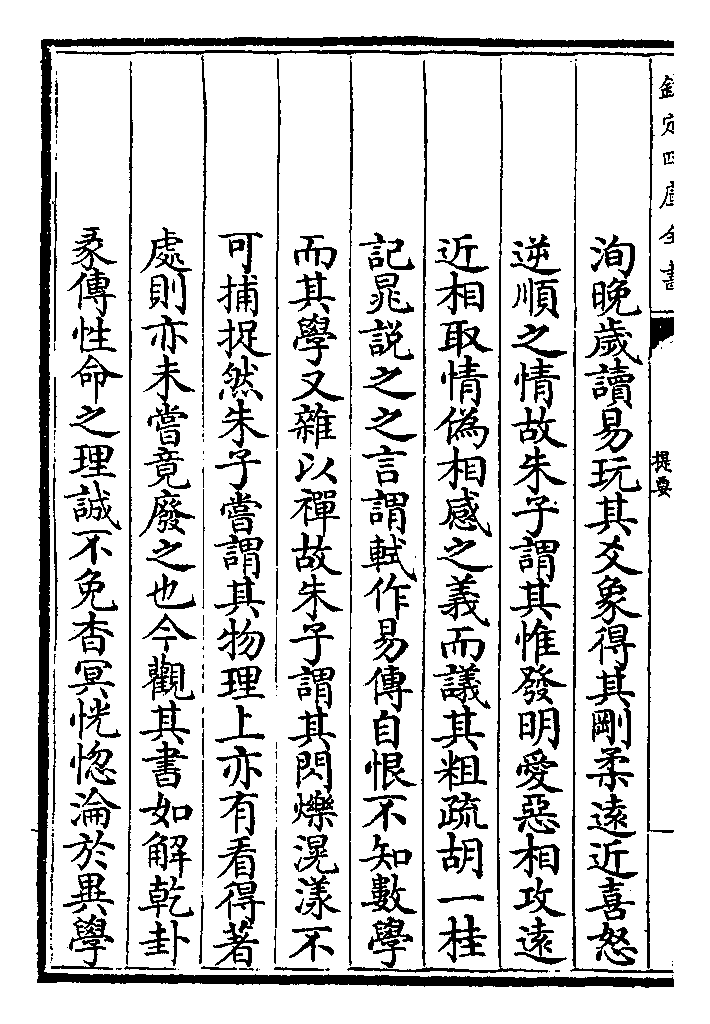 欽定四庫全書
提要
洵晚歲讀易玩其爻象得其剛柔遠近喜怒
逆順之情故朱子謂其惟發明愛惡相攻遠
近相取情偽相感之義而議其粗疏胡一桂
記晁説之之言謂軾作易傳自恨不知數學
而其學又雜以禪故朱子謂其閃爍滉漾不
可捕捉然朱子嘗謂其物理上亦有看得著
處則亦未嘗竟廢之也今觀其書如解乾卦
彖傳性命之理誠不免杳冥恍惚淪於異學